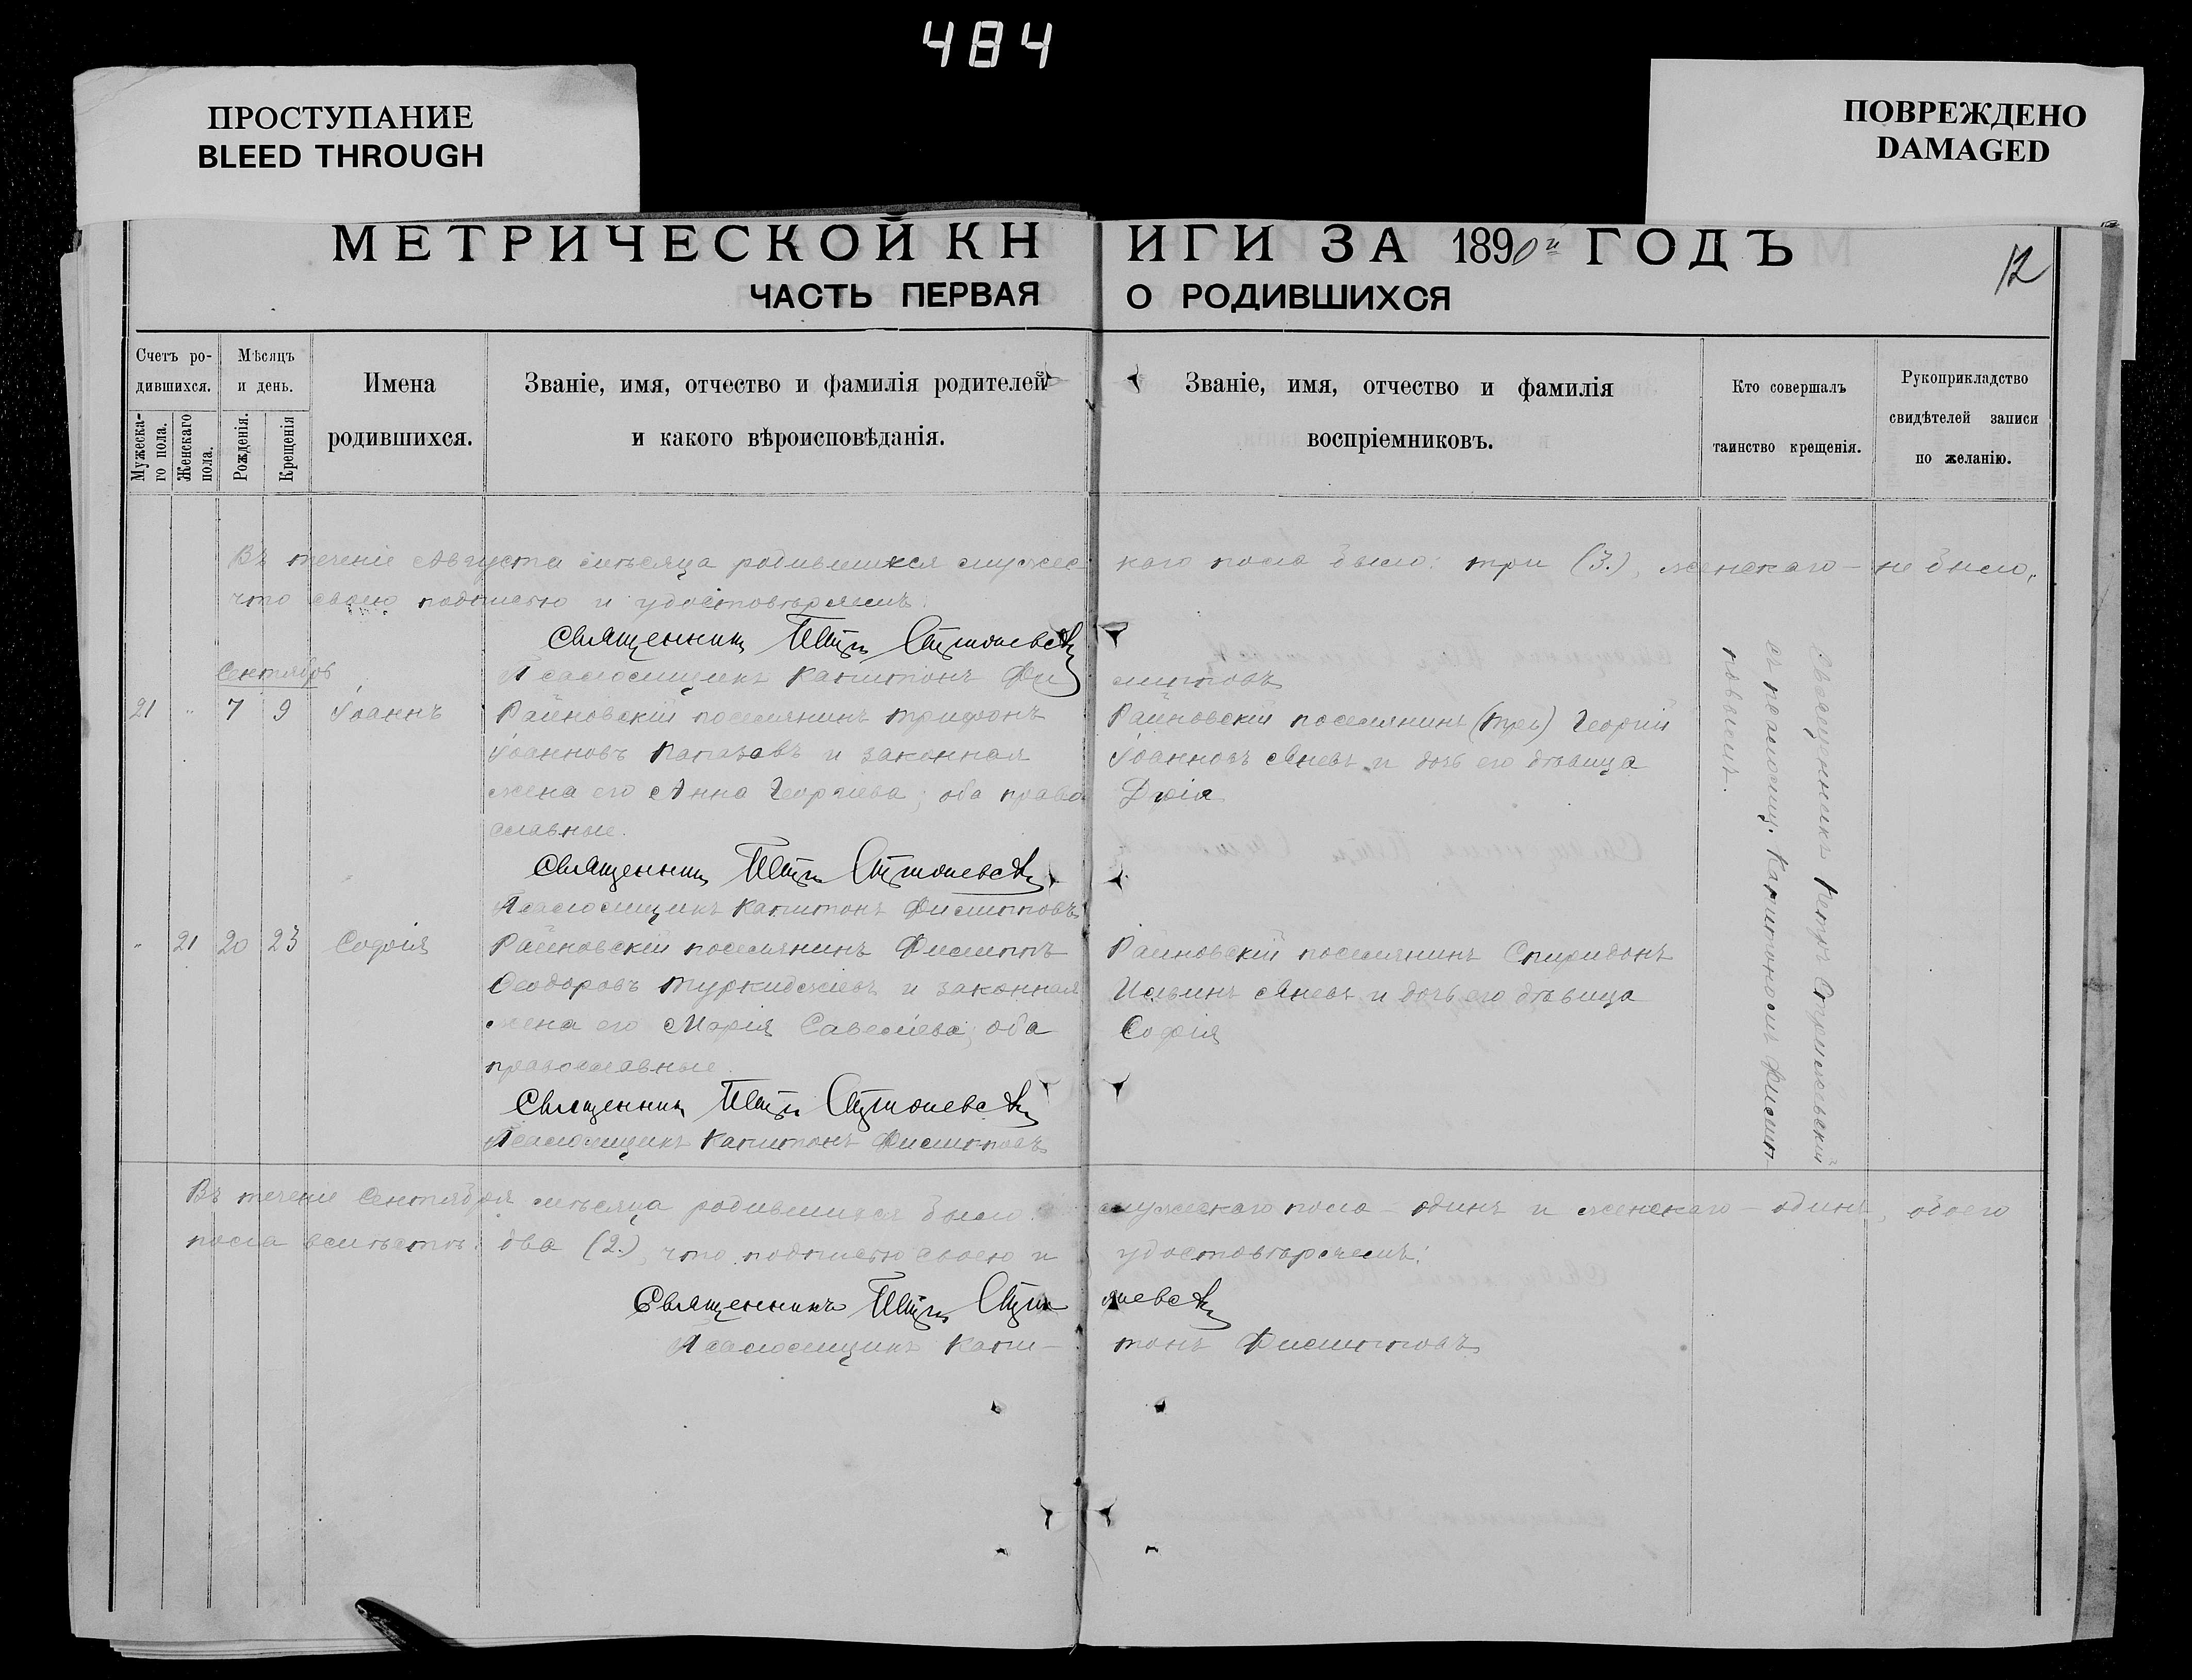 484
ПРОСТУПАНИЕ
BLEED THROUGH
ПОВРЕЖДЕНО
DAMAGED
МЕТРИЧЕСКОЙ КНИГИ ЗА 1890й ГОДЪ
12
ЧАСТЬ ПЕРВАЯ О РОДИВШИХСЯ
Счетъ родившихся.
Мужескаго пола.
Женскаго пола.
Мѣсяцъ и день.
Рожденія.
Крещенія
Имена
родившихся.
Званіе, имя, отчество и фамилія родителей
и какого вѣроисповѣданія.
Званіе, имя, отчество и фамилія
воспріемниковъ.
Кто совершалъ
таинство крещенія.
Рукоприкладство
свидѣтелей записи
по желанію.
Въ теченіе Августа мѣсяца родившихся мужескаго пола было: три (3.), женскаго – не было,
что своею подписью и удостовѣряемъ:
Священникъ Петръ
Псаломщикъ Капитонъ Филипповъ
Сентябрь
21 " 7 9 Іоаннъ
Райновскій поселянинъ Трифонъ
Іоанновъ Папазовъ и законная
жена его Анна Георгіева; оба право-
славные.
Райновскій поселянинъ Георгій
Іоанновъ Яневъ и дочь его дѣвица
Священникъ Петръ
Псаломщикъ Капитонъ Филипповъ
" 21 20 23 Софія
Райновскій поселянинъ Филиппъ
Ѳеодоровъ и законная
жена его Марія Савеліева; оба
православные.
Райновскій поселянинъ Спиридонъ
Ильинъ Яневъ и дочь его дѣвица
Софія
Священникъ Петръ
Псаломщикъ Капитонъ Филипповъ
Священникъ Петръ
съ псаломщ. Капитономъ Филип-
повымъ.
Въ теченіе Сентября мѣсяца родившихся было: мужескаго пола – одинъ и женскаго – одинъ, обоего
пола вмѣстѣ: два (2.), что подписью своею и удостовѣряемъ:
Священникъ Петръ
Псаломщикъ Капи- тонъ Филипповъ